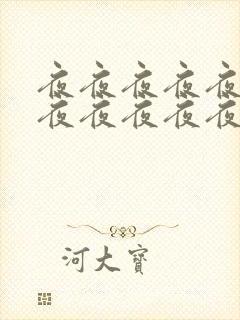 夜夜夜夜夜
夜夜夜夜夜
河大寶